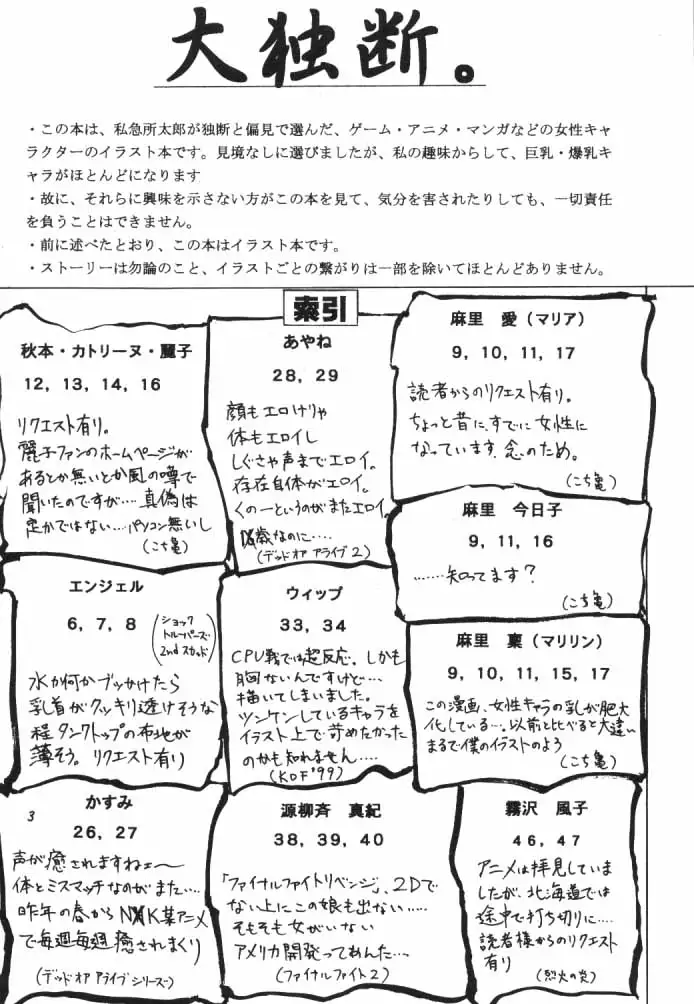 大独断。
・この本は、私急所太郎が独断と偏見で選んだ、ゲーム・アニメ・マンガなどの女性キャ
ラクターのイラスト本です。見境なしに選びましたが、私の趣味からして、巨乳・爆乳キ
ャラがほとんどになります
・故に、それらに興味を示さない方がこの本を見て、気分を害されたりしても、一切責任
を負うことはできません。
・前に述べたとおり、この本はイラスト本です。
・ストーリーは勿論のこと、イラストごとの繋がりは一部を除いてほとんどありません。
索引
秋本・カトリーヌ・麗子
12, 13, 14, 16
リクエスト有り。
麗子ファンのホームページが
あるとか無いとか風の噂で
聞いたのですが‥‥真偽は
定かではない‥‥パソコン無いし
(こち亀)
あやね
28, 29
(デッド オア アライブ 2)
麻里 愛(マリア)
9, 10, 11, 17
読者からのリクエスト有り。
ちょっと昔に、すでに女性に
なっています、念のため。
(こち亀)
麻里 今日子
9, 11, 16
‥‥‥知ってます?
(こち亀)
エンジェル
6, 7, 8
(ショック
トルーパーズ
2nd スカッド)
水か何かブッかけたら
乳首がクッキリ透けそうな
程タンクトップの布地が
薄そう。リクエスト有り
ウィップ
33, 34
CPU戦では超反応。しかも
胸ないんですけど‥‥
描いてしまいました。
ツンケンしているキャラを
イラスト上で苛めたかった
のかも知れません‥‥
(KOF '99)
麻里 稟(マリリン)
9, 10, 11, 15, 17
この漫画、女性キャラの乳が肥大
化している‥‥。以前と比べると大違い
まるで僕のイラストのよう
(こち亀)
3
かすみ
26, 27
声が癒されますねェ〜
体とミスマッチなのがまた‥‥
昨年の春からNHK某アニメ
で毎週毎週癒されまくり
(デッド オア アライブ シリーズ)
源柳斉 真紀
38, 39, 40
「ファイナルファイトリベンジ」、2Dで
ない上にこの娘も出ない‥‥‥
そもそも女がいない
アメリカ開発ってあんた‥‥
(ファイナルファイト2)
霧沢 風子
46, 47
アニメは拝見していま
したが、北海道では
途中で打ち切りに‥‥
読者様からのリクエスト
有り
(烈火の炎)